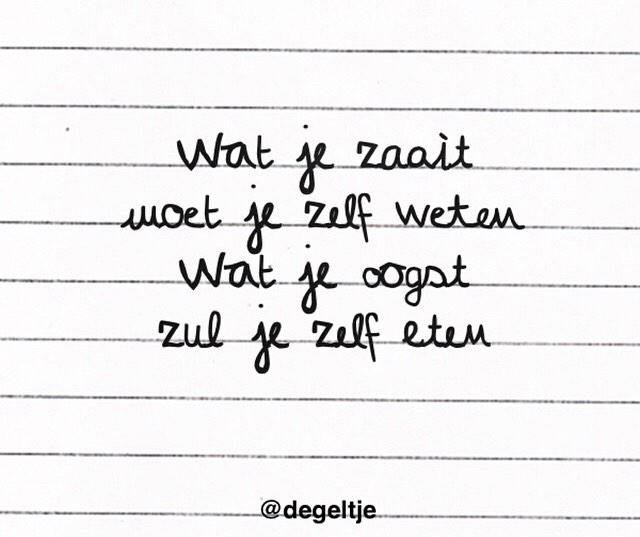 Wat je zaait
moet je zelf weten
Wat je oogst
zul je zelf eten
@degeltje